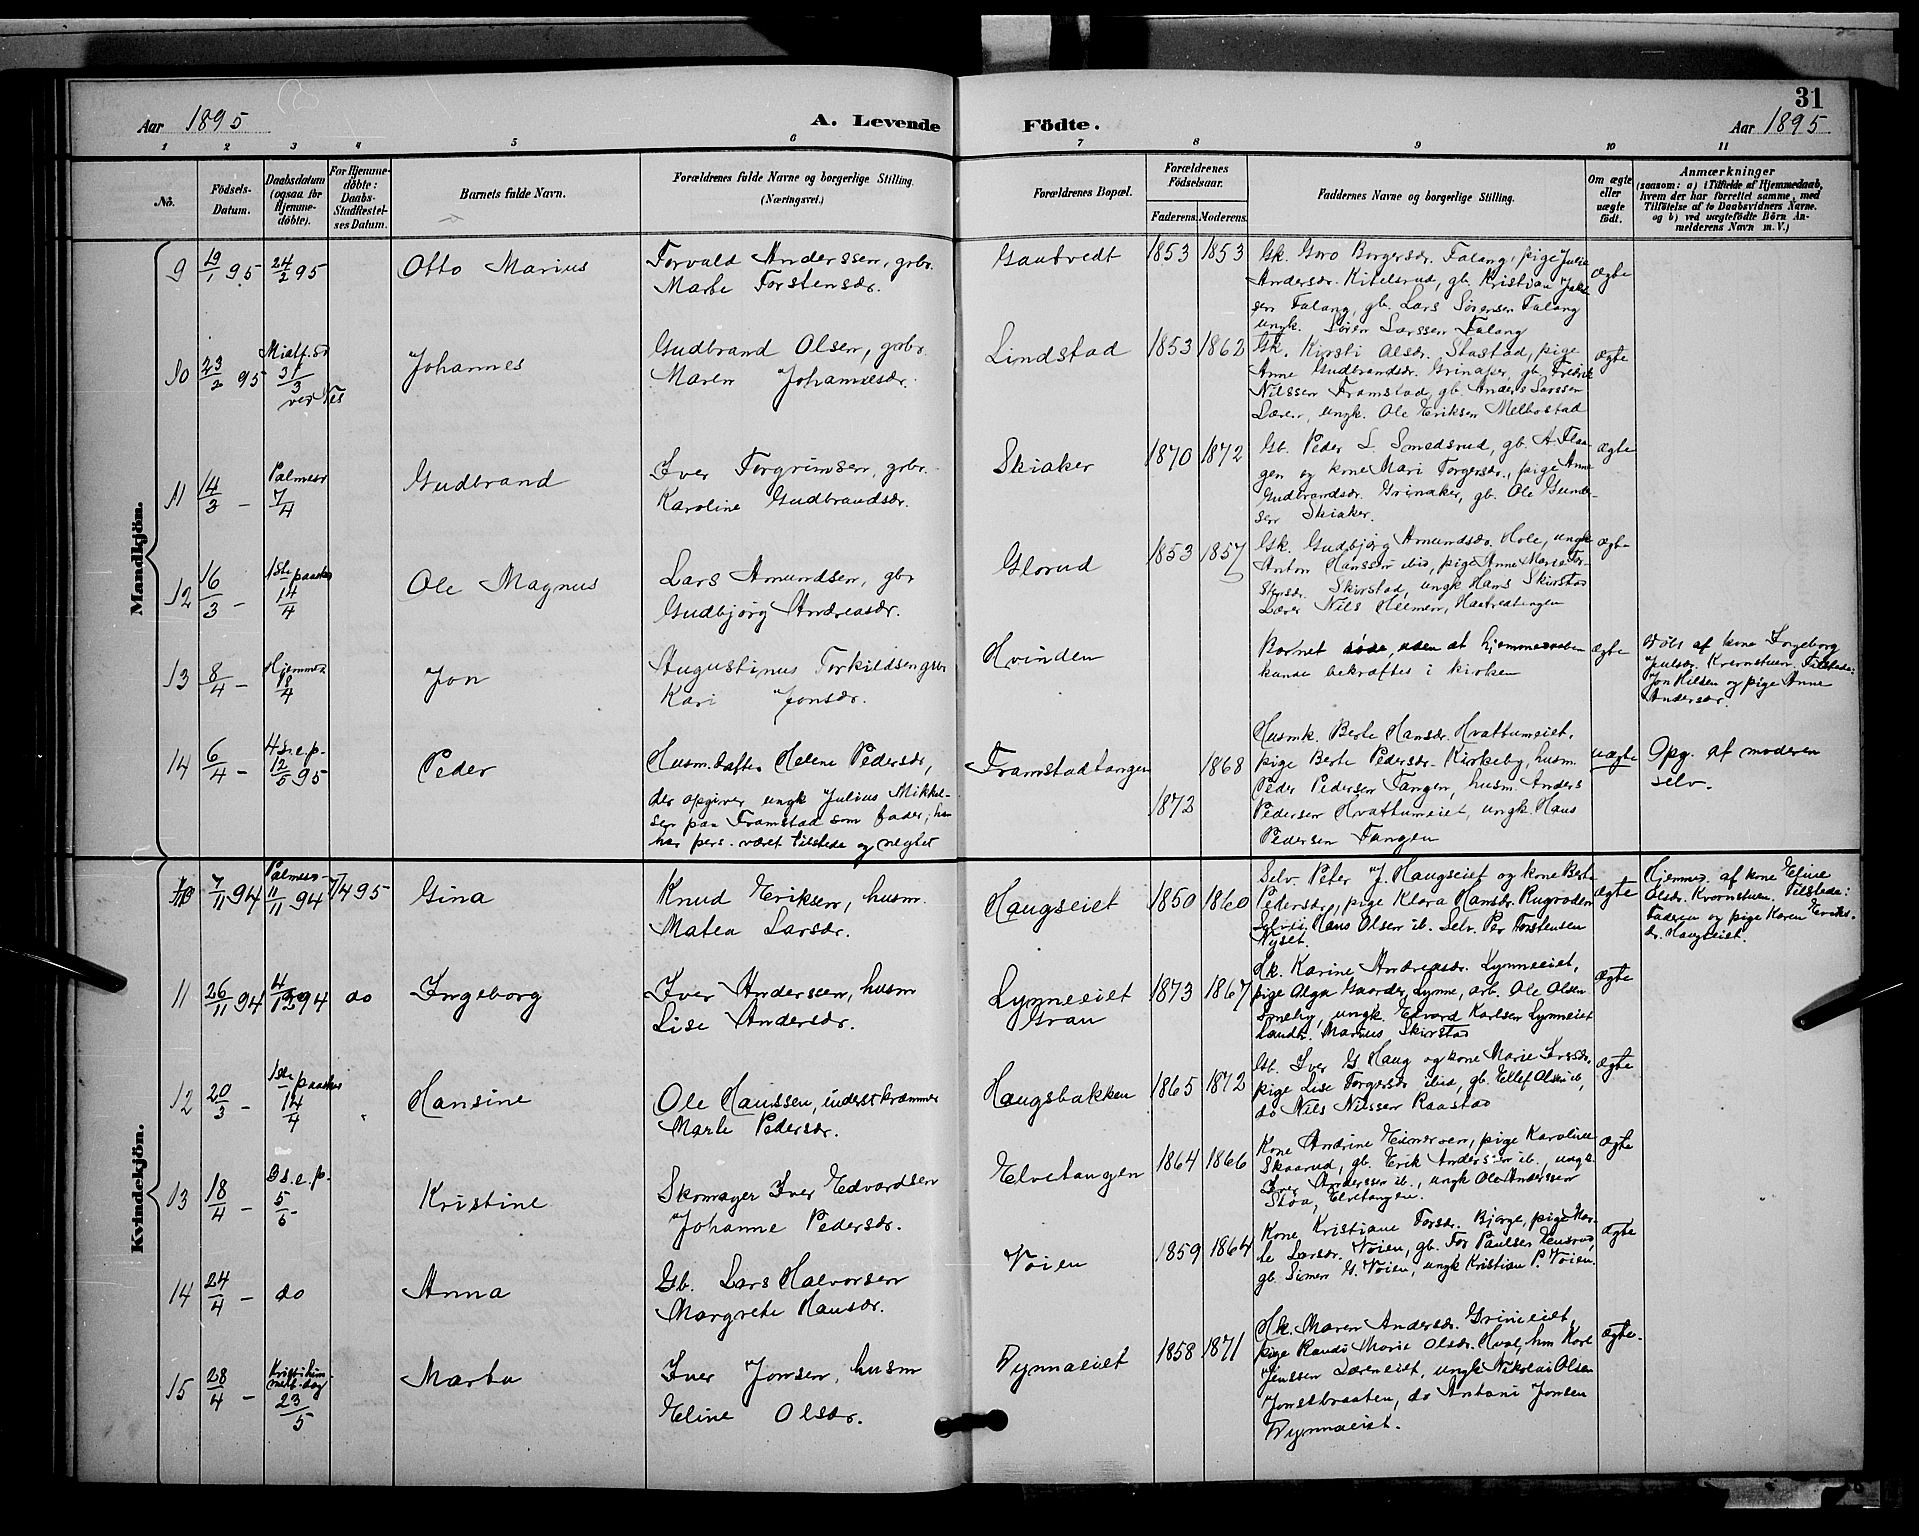 31
Aar 1895
A. Levende
Födte.
Aar 1895
1 2 3 4 5 6 7 8 9 10 11
No.
Födsels-
Datum.
Daabsdatum
(ogsaa for
Hjemme-
döbte).
For Hjemme-
döbte:
Daabs-
Stadfæstel-
ses Datum.
Barnets fulde Navn.
Forældrenes fulde Navne og borgerlige Stilling.
(Næringsvei.)
Forældrenes Bopæl.
Forældrenes
Födselsaar.
Faderens.
Moderens.
Faddernes Navne og borgerlige Stilling.
Om ægte
eller
uægte
födt.
Anmærkninger
(saasom: a) i Tilfælde af Hjemmedaab,
hvem der har forrettet samme, med
Tilföielse af to Daabsvidners Navne.
og b) ved uægtefödte Börn An-
melderens Navn m. V.)
Mandkjön.
9 19/1 95 24/2 95 Otto Marius
Torvald Anderssen, grbr.
Marte Torstensdr.
Gautvedt 1853 1853
Gk. Goro Borgersdr. Falang, pige Julie
Andersdr. Kitelsrud, gb. Kristian
sen Falang, gb. Lars Sörensen Falang
ungk. Sören Larssen Falang
ægte
10 23/2 95 31/3 Johannes
Gudbrand Olsen, grbr.
Maren Johannesdr.
Lindstad 1853 1862
Gk. Kirsti Olsdr. Stastad, pige
Anne Gudbrandsdr. Grinaker, gb. Fredrik
Nilssen Framstad, gb. Anders Larssen
ungk. Ole Eriksen Melbostad
ægte
11 14/3 – Palmes. 7/4 Gudbrand
Iver Torgrimsen, grbr.
Karoline Gudbrandsdr.
Skiaker 1870 1872
Gb. Peder L. Smedsrud, gb. A. Flaa-
gen og kone Mari Torgersdr., pige Anne
Gudbrandsdr. Grinaker, gb. Ole Gunder-
sen Skiaker.
ægte
12 16/3 – 1ste paaske 14/4 Ole Magnus
Lars Amundsen, gbr
Gudbjörg Andreasdr.
Glorud 1853 1857
Gk. Gudbjörg Amundsdr. Hole, ungk
Anton Hanssen ibid, pige Anne Marie
Skirstad, ungk Hans Skirstad
Lærer Nils
ægte
13 8/4 – Hjemme 18/4 Jon
Augustinus Torkildsen grbr
Kari Jonsdr.
Hvinden
Barnet döde, uden at hjemmedaaben
kunde bekræftes i kirken
ægte
Döbt af kone Ingeborg
Julsdr. Kvernstuen. Tilstede:
Jon Hilden og pige Anne
Andersdr.
14 6/4 – 4 s. e. p. 12/5 95 Peder
Husm.datter Helene Pedersdr,
der opgiver ungk Julius Mikkel-
sen paa Framstad som fader; han
har pers. været tilstede og negtet
Framstadtangen 1873 1868
Husmk. Berte Hansdr. Hvattumeiet,
pige Berte Pedersdr. Kirkeby, husm.
Peder Pedersen Tangen, husm. Anders
Pedersen Hvattumeiet, ungk Hans
Pedersen Tangen
uægte
Opg. af moderen
selv.
Kvindekjön.
10 7/11 94 11/11 94 Palmes. 7/4 95 Gina
Knud Eriksen, husm.
Matea Larsdr.
Haugseiet 1850 1860
Selv. Peter J. Haugseiet og kone Berte
Pedersdr., pige Klara Hansdr. Rugroden
Hans Olsen ib. Selv. Per Torstensen
Nyset.
ægte
Hjemmed. af kone Eline
Olsdr. Kvernstuen. Tilstede:
Faderen og pige Karen Eriks-
dr. Haugseiet.
11 26/11 94 4/12 94 do Ingeborg
Iver Anderssen, husm
Lise Andersdr.
Lynneeiet
Gran
1873 1867
Hk. Karine Andreasdr. Lynneeiet,
pige Olga Gaarder Lynne, arb. Ole Olsen
Smeby, ungk. Edvard Karlsen Lynneeiet
Landh. Marius Skirstad
ægte
12 20/3 – 1ste paaske 14/4 Hansine
Ole Hanssen, inderst kræmmer
Marte Pedersdr.
Haugsbakken 1865 1872
Gb. Iver G. Haug og kone Marie
pige Lise Torgersdr ibid, gb. Ellef Olsen ib,
do Nils Nilssen Raastad
ægte
13 18/4 – 3 s. e. p. 5/5 Kristine
Skomager Iver Edvardsen
Johanne Pedersdr.
Elvetangen 1864 1866
Kone Andrine Einersen, pige Karoline
Skaarud, gb. Erik Anderssen ib., ungk
Iver Anderssen ib., ungk Ole Anderssen
Stoa, Elvetangen.
ægte
14 24/4 – do Anna
Gb. Lars Halvorsen
Margrete Hansdr.
Vöien 1859 1864
Kone Kristiane Torsdr. Bjørge, pige Mar-
te Larsdr. Vöien, gb. Tor Paulsen
gb. Simen G. Vöien, ungk Kristian P. Vöien.
ægte
15 28/4 – Kristi him-
melf. dag 23/5 Marta
Iver Jonsen, husm
Eline Olsdr.
Dynnaeiet 1858 1871
Hk. Maren Andersdr. Grinieiet,
pige Randi Marie Olsdr. Hval, hm Karl
Jenssen Lærneiet, ungk Nikolai Olsen
Jonstbraaten, do Antoni Jonsen
Dynnaeiet.
ægte.